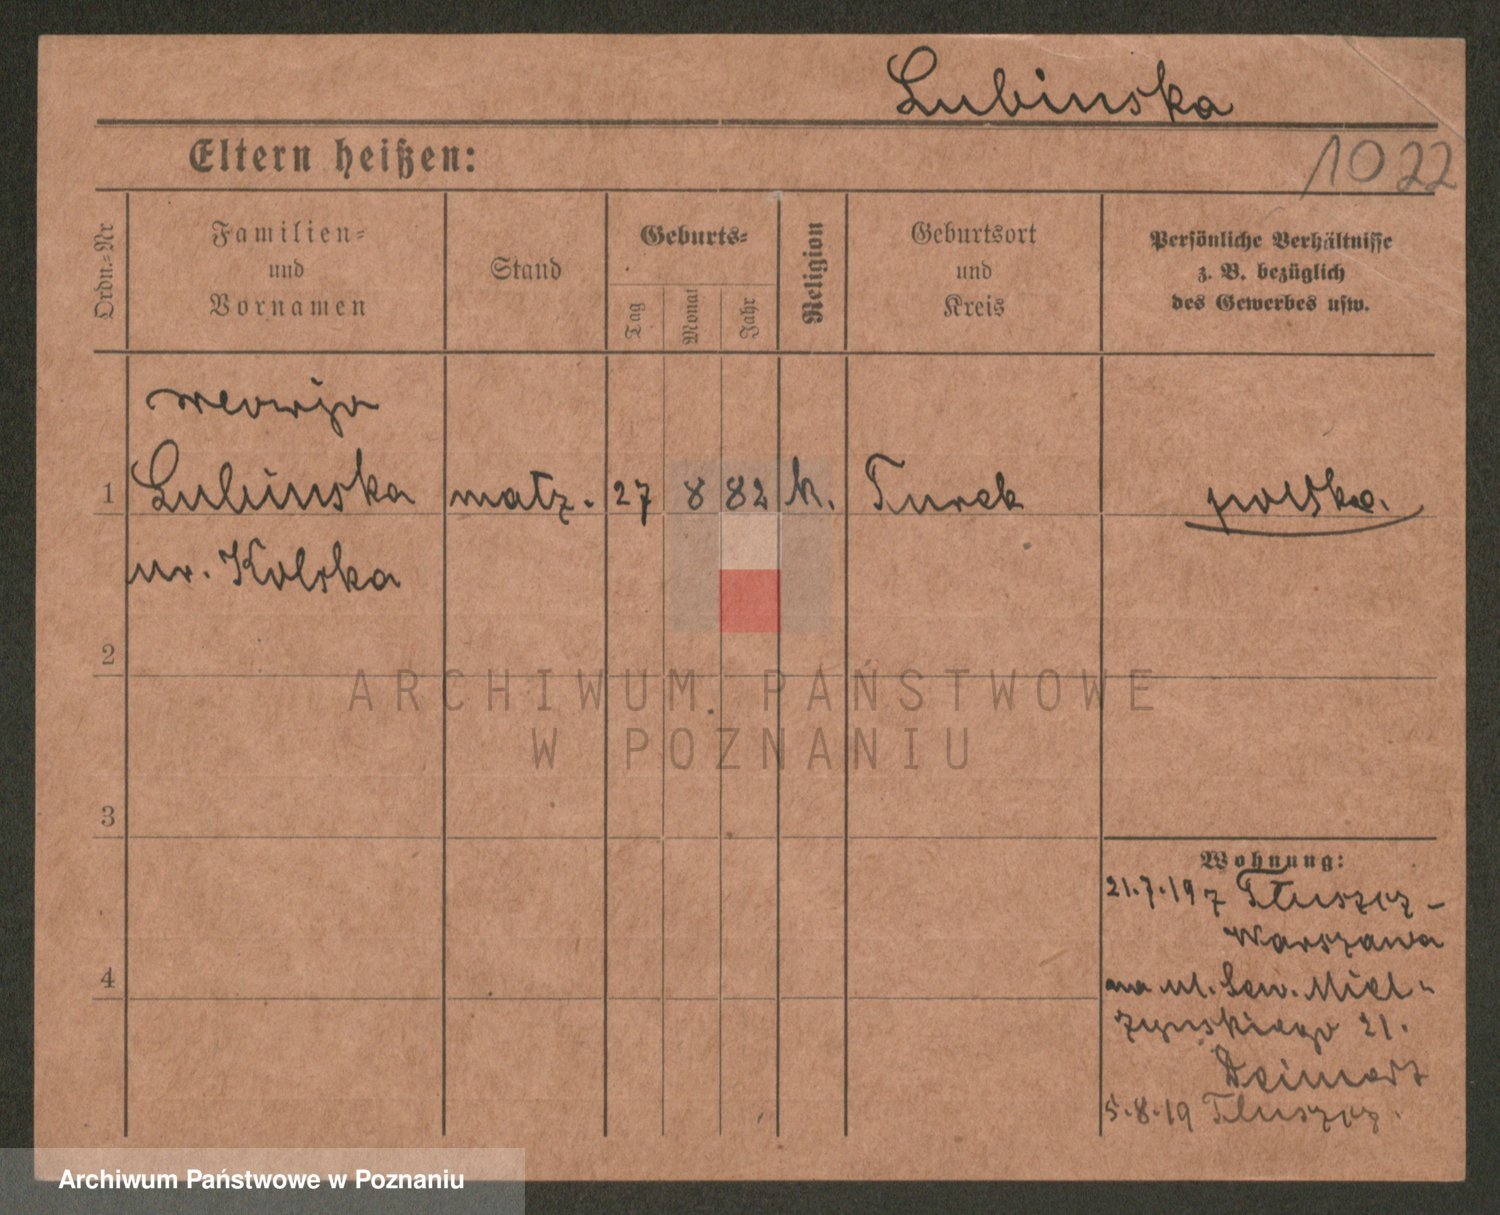 Lubinska
Eltern heißen:
1022
Ordn.-Nr
Familien-
und
Vornamen
Stand
Geburts-
Tag
Monat
Jahr
Religion
Geburtsort
und
Kreis
Persönliche Verhältnisse
z. B. bezüglich
des Gewerbes usw.
Marja
1 Lubinska matz. 27 8 82 k. Turek polska.
ur. Kolska
2
ARCHIWUM PAŃSTWOWE
W POZNANIU
3
Wohnung:
21.7.19 z Tłuszcz -
Warszawa
4
na ul. Sew. Miel-
zynskiego 21.
5.8.19 Tluszcz.
Archiwum Państwowe w Poznaniu